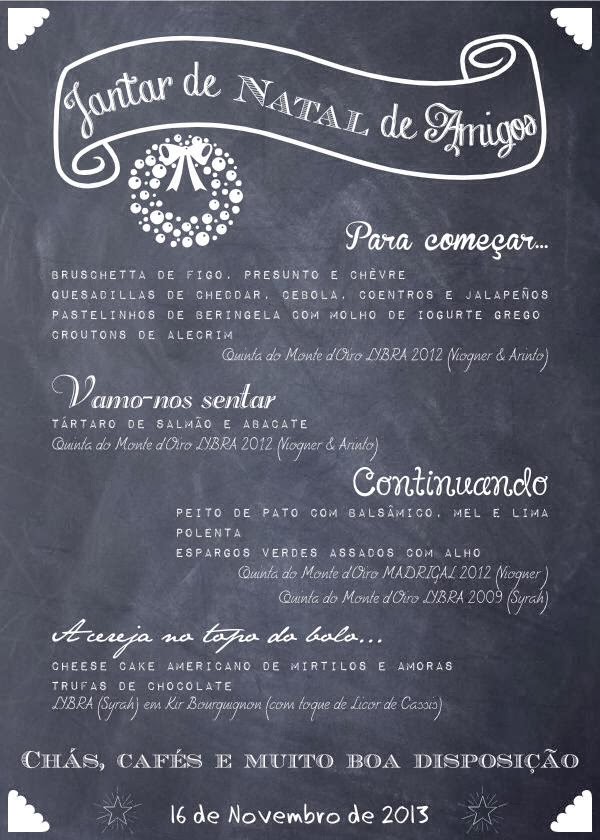 Jantar de NATAL de Amigos
Para começar...
BRUSCHETTA DE FIGO, PRESUNTO E CHÈVRE
QUESADILLAS DE CHEDDAR, CEBOLA, COENTROS E JALAPEÑOS
PASTELINHOS DE BERINGELA COM MOLHO DE IOGURTE GREGO
CROUTONS DE ALECRIM
Quinta do Monte d'Oiro LYBRA 2012 (Viogner & Arinto)
Vamo-nos sentar
TÁRTARO DE SALMÃO E ABACATE
Quinta do Monte d'Oiro LYBRA 2012 (Viogner & Arinto)
Continuando
PEITO DE PATO COM BALSÂMICO, MEL E LIMA
POLENTA
ESPARGOS VERDES ASSADOS COM ALHO
Quinta do Monte d'Oiro MADRIGAL 2012 (Viogner )
Quinta do Monte d'Oiro LYBRA 2009 (Syrah)
A cereja no topo do bolo...
CHEESE CAKE AMERICANO DE MIRTILOS E AMORAS
TRUFAS DE CHOCOLATE
LYBRA (Syrah) em Kir Bourguignon (com toque de Licor de Cassis)
CHÁS, CAFÉS E MUITO BOA DISPOSIÇÃO
16 de Novembro de 2013